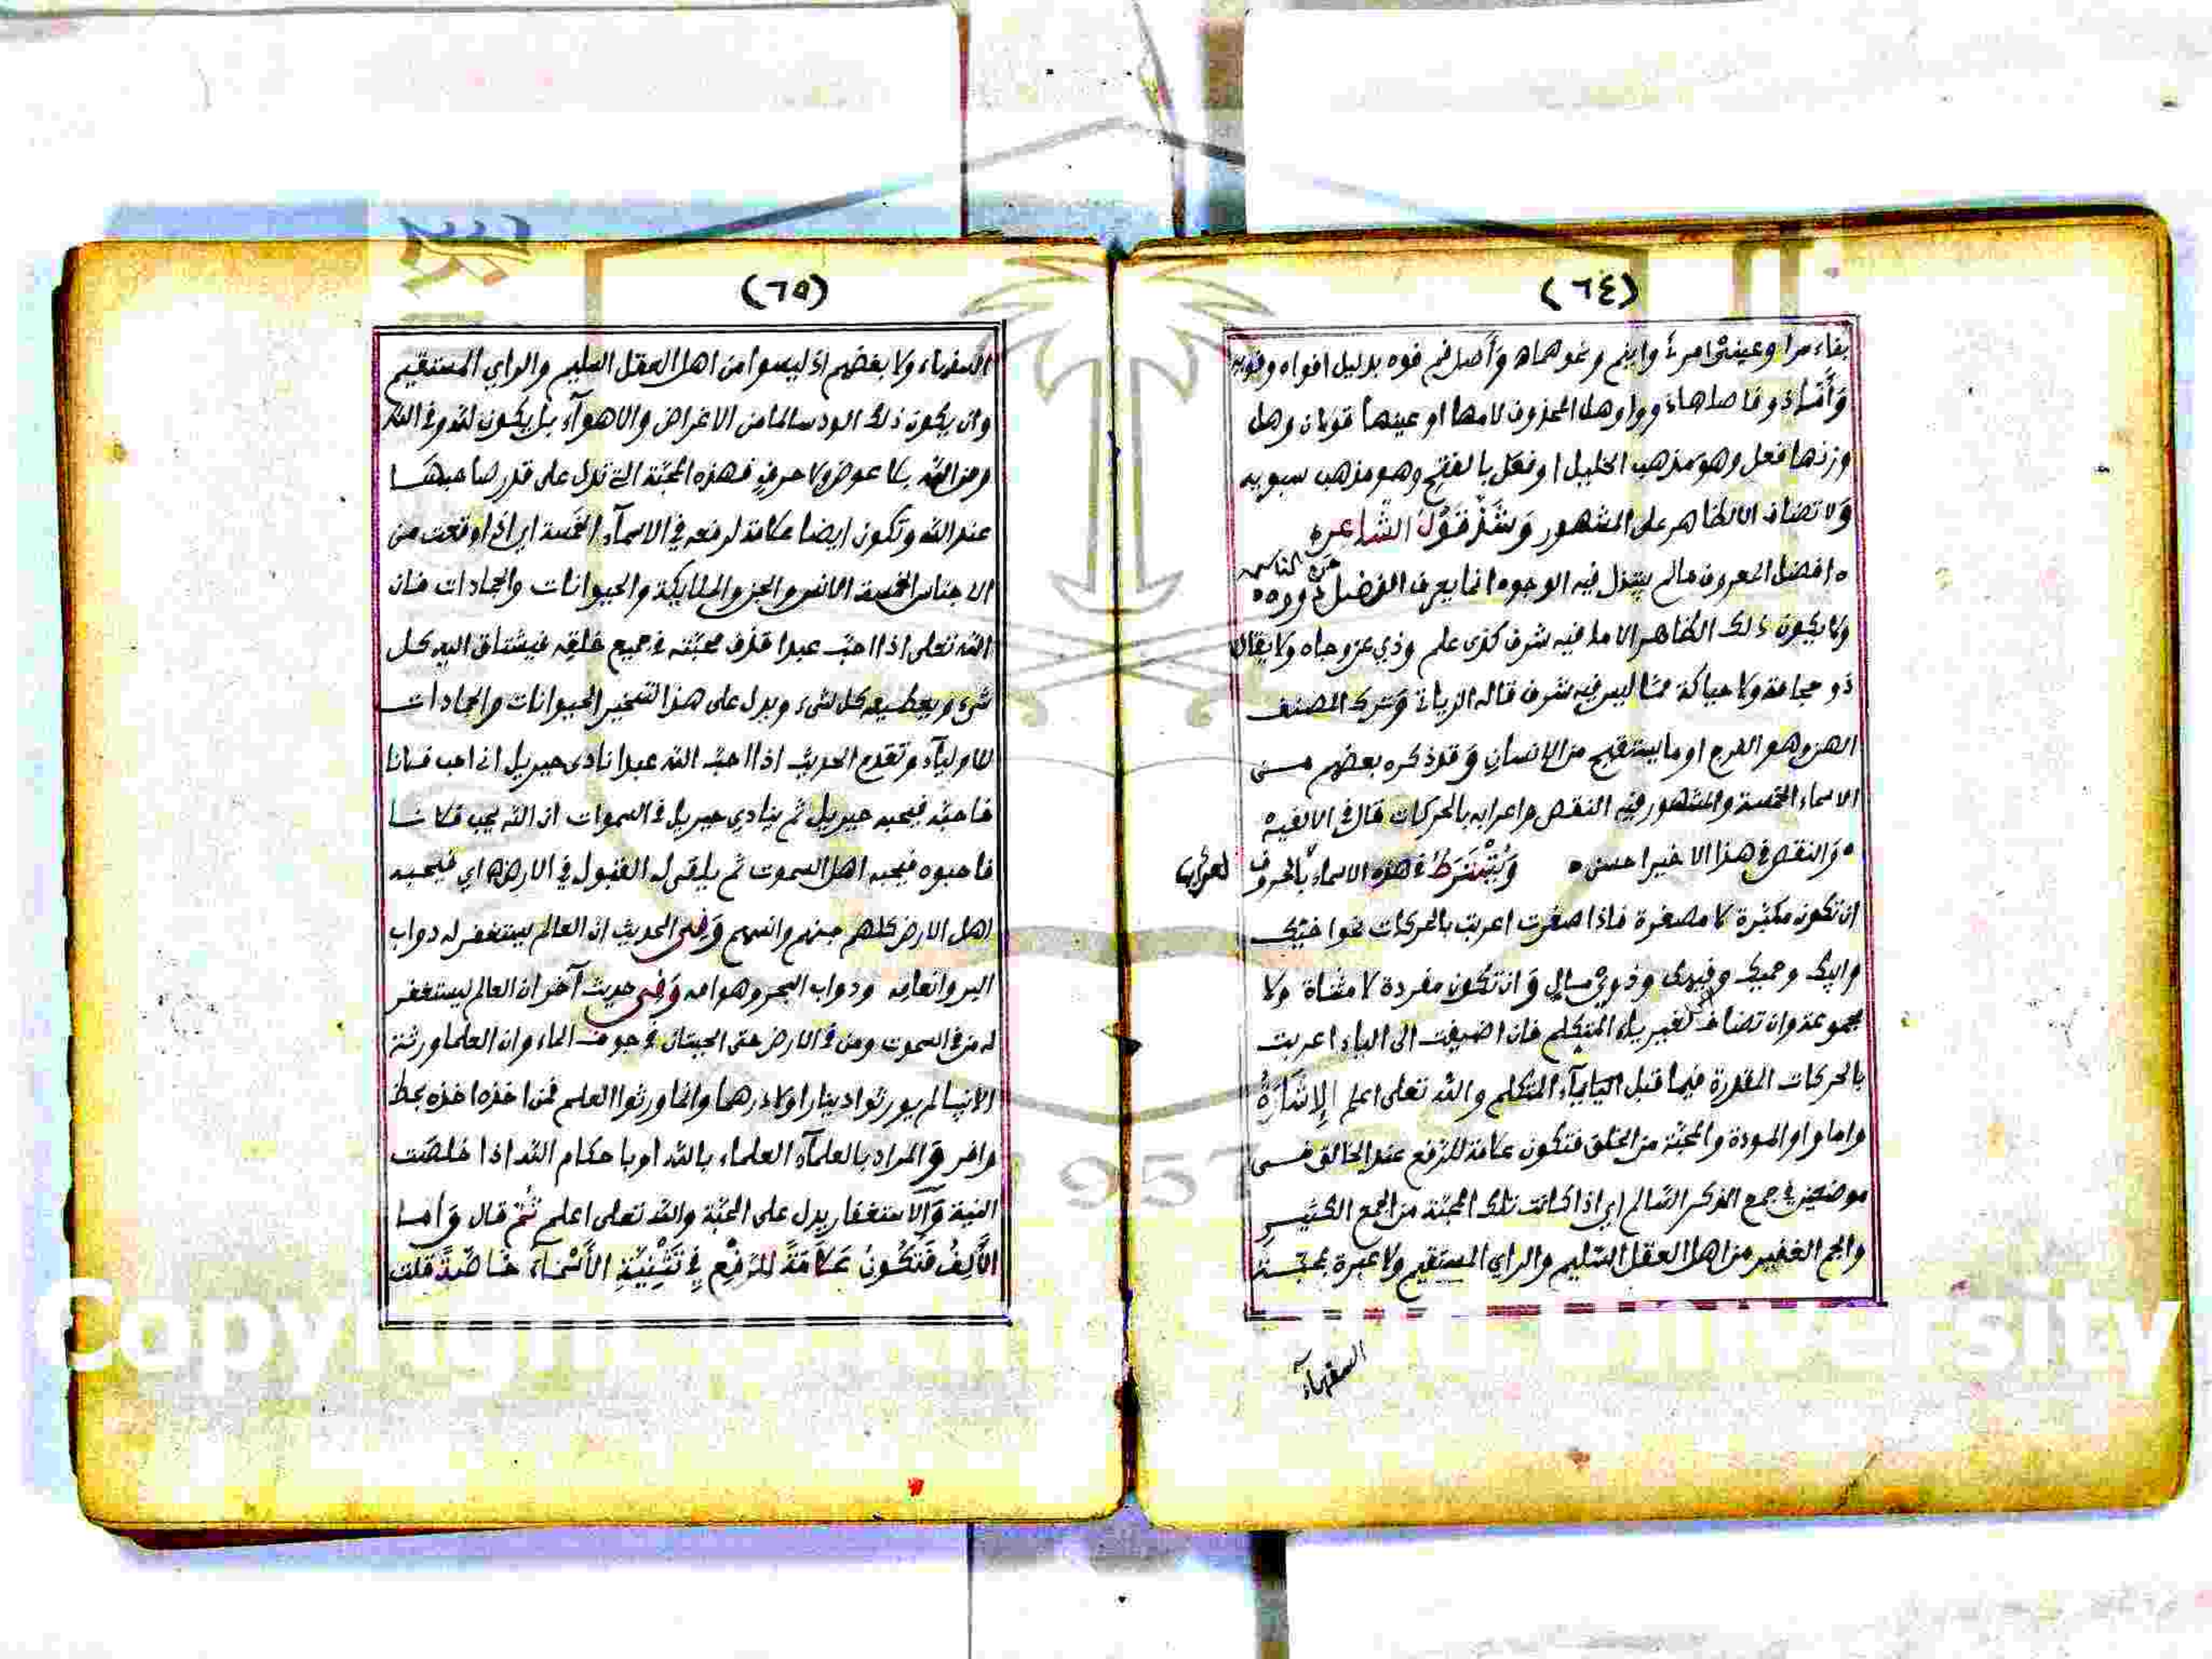 (٦٤)
بفاء مرا وعينى امرئ وابنم ونحوهما ه وأصل فم فوه بدليل افواه وفويه
وَأَمَّا ذو فاصلها ذووا وهل المحذوف لامها او عينها قولان وهل
وزنها فعل وهو مذهب الخليل او فعَل بالفتح وهو مذهب سبويه
وَلا تضاف الا لظاهر على المشهور وَشَذَّ قَوْلُ الشَّاعر ه
ه افضل المعروف مالم يبتذل فيه الوجوه انما يعرف الفضل من الناس ذووه ه
ولا يكون ذلك الظاهر الا ما فيه شرف كذى علم وذي عز وجاه ولا يقال
ذو حجامة ولا حياكة ممّا ليس فيه شرف قاله الزياتي وَترك المصنف
الهن وهو الفرج او ما يستقبح من الانسان وَقد ذكره بعضهم مـن
الاسماء الخمسة والمشهور فيه النقص واعرابه بالحركات قال في الالفيه
ه وَالنقص في هذا الاخير احسن ه وَيُشْتَرَطُ في هذه الاسماء بالحروف
لعراب
ان تكون مكبّرة لا مصغرة فاذا صغرت اعربت بالحركات نحو اخيّك
وابيّك وحميّك وفويهك وذويّ مال وَان تكون مفردة لا مثناة ولا
مجموعة وان تضاف لغير ياء المتكلم فان اضيفت الى الياء اعربت
بالحركات المقدرة فيما قبل اليا ياء المتكلم والله تعلى اعلم الإِشَارَةُ
واما واو المودة والمحبّة من الخلق فتكون علامة للرّفع عند الخالق فـى
موضعين في جمع المذكر السّالم اي اذا كانت تلك المحبّة من الجمع الكثيـر
والجم الغفير من اهل العقل السّليم والراي المستقيم ولا عبرة بمحبّـة
السفهآء
(٦٥)
السفهاء ولا بغضهم اذ ليسوا من اهل العقل السليم والراي المستقيم
وان يكون ذلك الود سالما من الاغراض والاهوآء بل يكون لله وفى الله
ومن الله بلا عوض ولا حرف فهذه المحبّة التى تدل على قدر صاحبهـا
عند الله وتكون ايضا علامة لرفعه في الاسمآء الخمسة اي اذا وقعت من
الاجناس الخمسة الانس والجن والملايكة والحيوانات والجمادات فان
الله تعلى اذا احبّ عبدا قذف محبّته في جميع خلقه فيشتاق اليه كـل
شيء ويعطيعه كل شيء ويدل على هذا تسخير الحيوانات والجمادات
للاوليآء وتقدم الحديث اذا احبّ الله عبدا نادى جبريل اني احب فلانا
فاحبّه فيحبه جبريل ثم ينادي جبريل في السموات ان الله يحب فلانـا
فاحبوه فيحبه اهل السموت ثم يلقى له القبول في الارض ه اي فيحبـه
اهل الارض كلهم جنهم وانسهم وَفِى الحديث ان العالم يستغفر له دواب
البر وانعامه ودواب البحر وهوامه وَفِى حديث آخر ان العالم ليستغفر
له من في السموت ومن في الارض حتى الحيتان في جوف الماء وان العلما ورثة
الانبيا لم يورثوا دينارا ولا درهما وانما ورثوا العلم فمن اخذه اخذه بحظ
وافر وَالمراد بالعلمآء العلماء بالله او باحكام الله اذا خلصت
النية وَالاستغفار يدل على المحبّة والله تعلى اعلم ثُمَّ قال وَأمـا
الأَلِفُ فَتَكُونُ عَلاَمَةً لِلرَّفْعِ فِي تَثْنِيَةِ الأَسْمَآءِ خَاصَّةً قلت
Copyright © King Saud University
1957